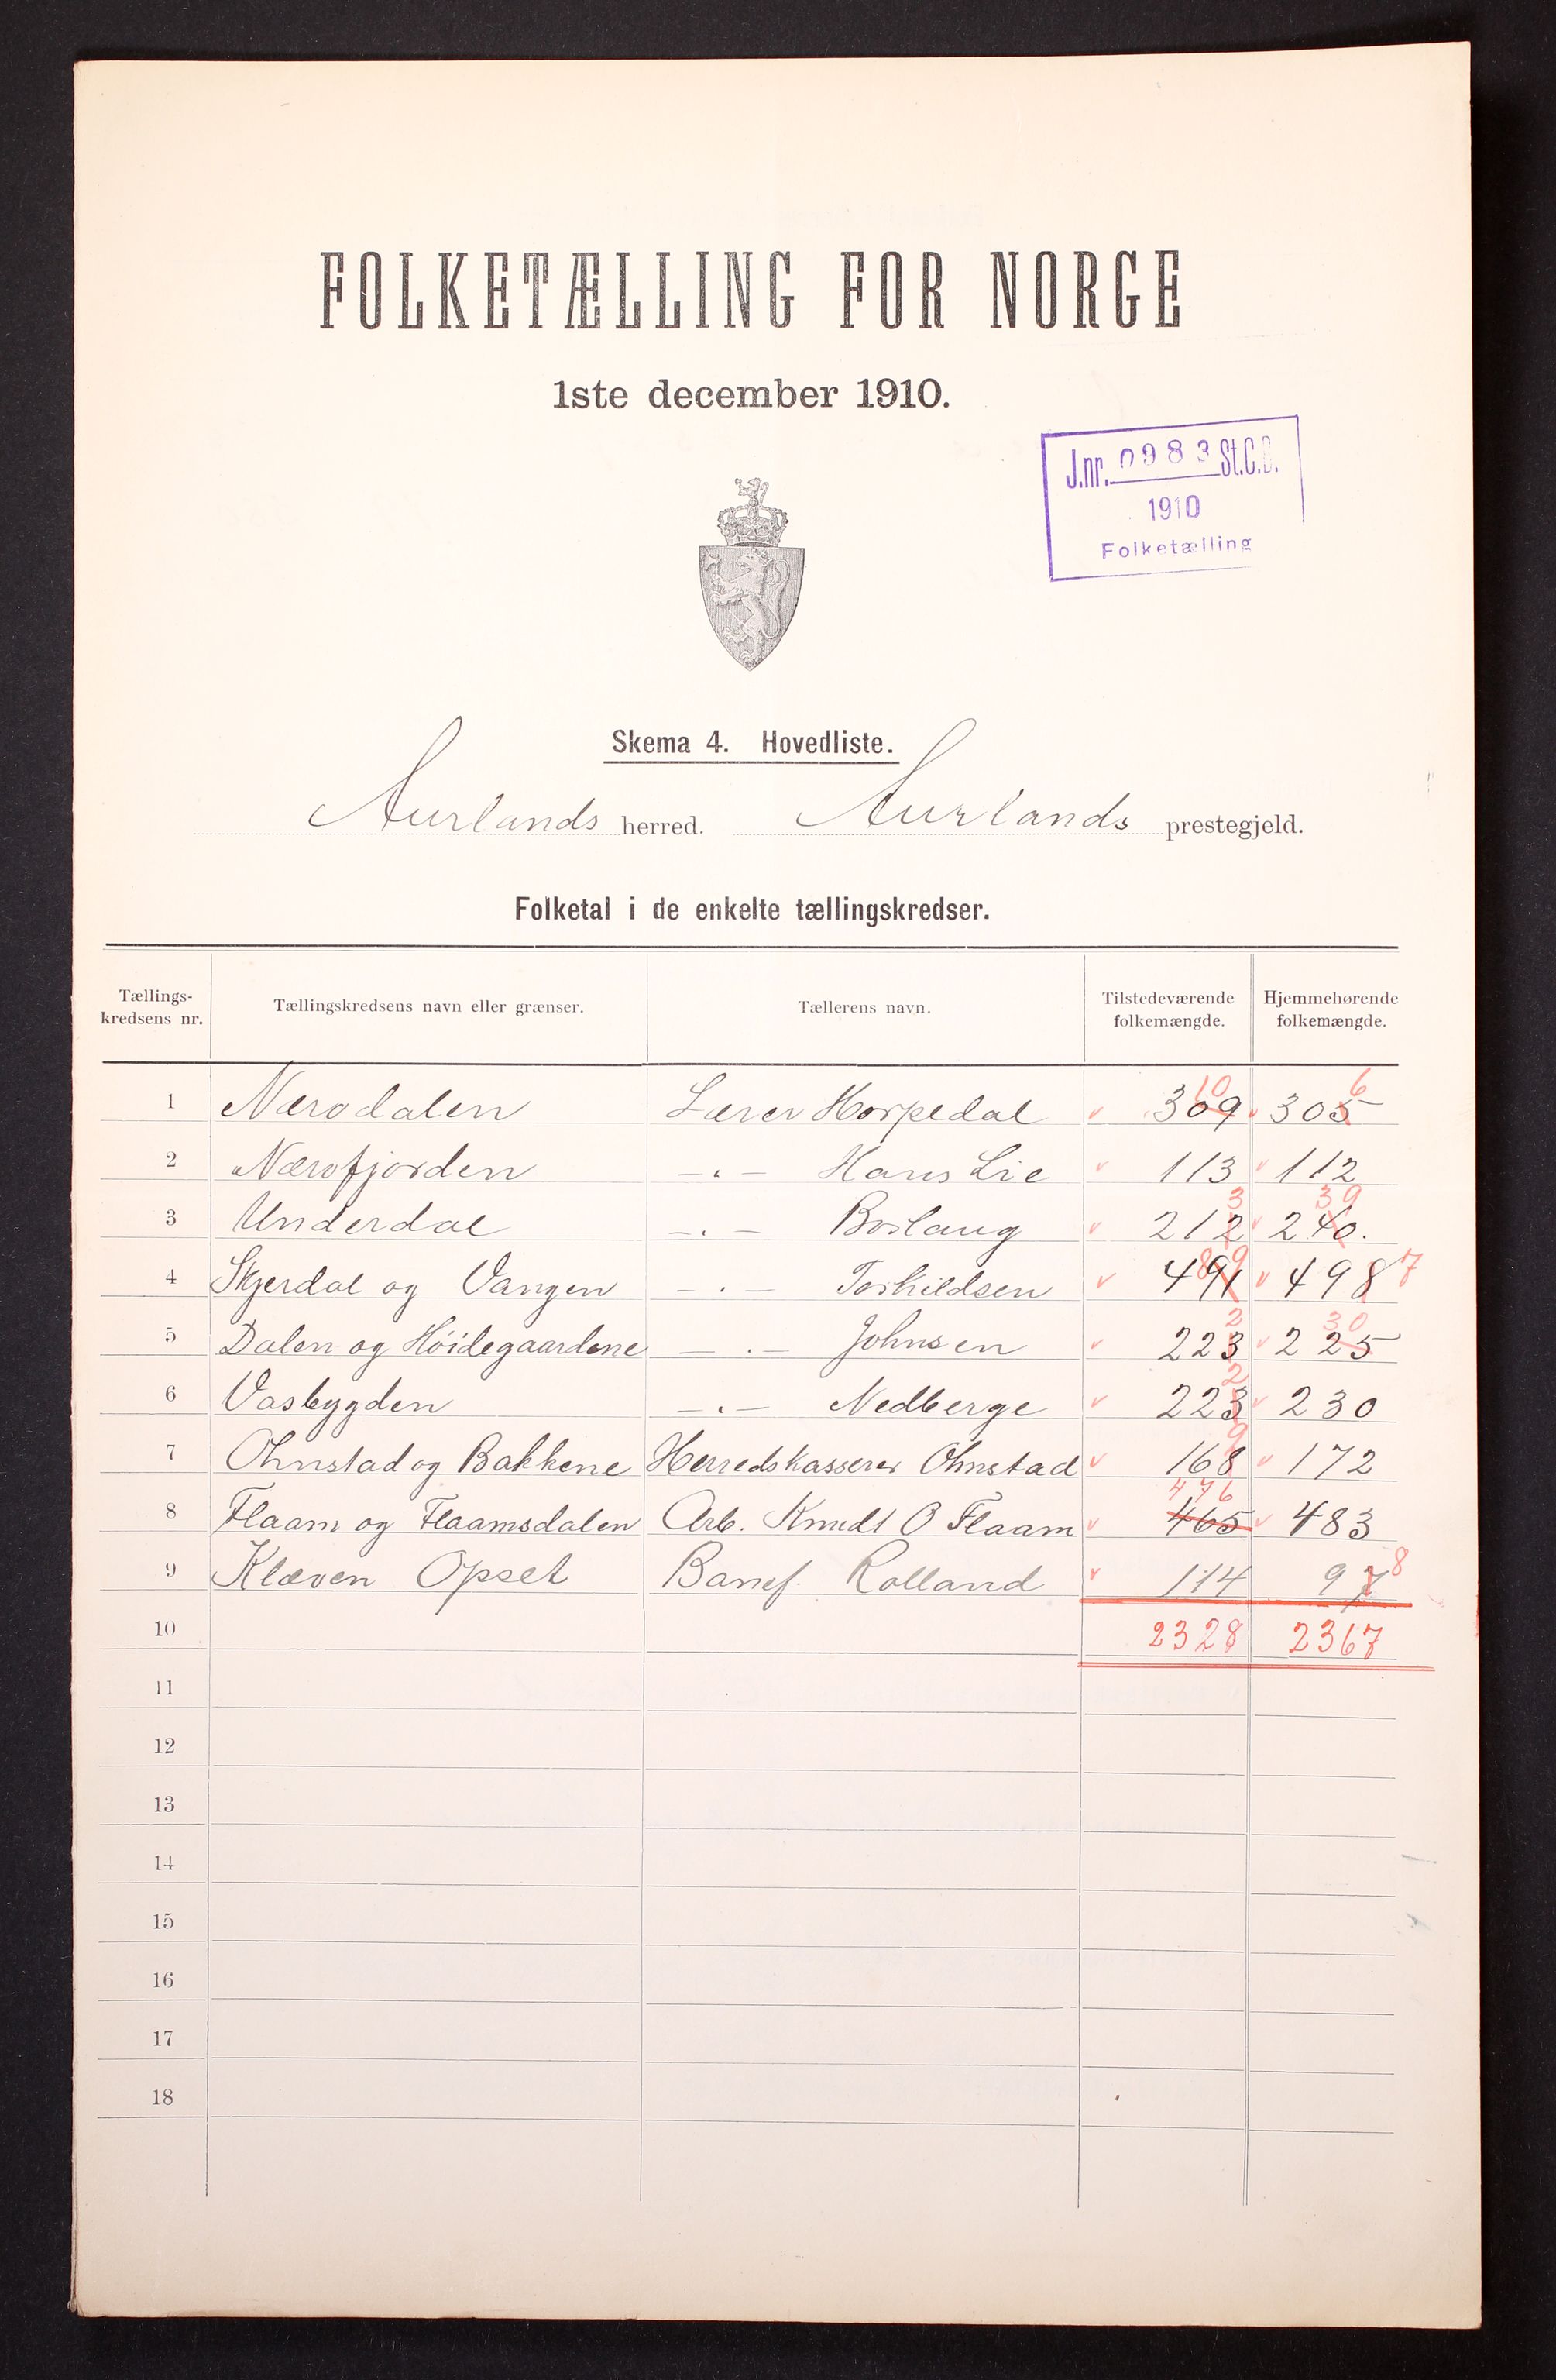 FOLKETÆLLING FOR NORGE
1ste december 1910.
J.nr. 0983 St.C.B.
1910
Folketælling
Skema 4. Hovedliste.
Aurlands herred. Aurlands prestegjeld.
Folketal i de enkelte tællingskredser.
Tællings-kredsens nr. Tællingskredsens navn eller grænser. Tællerens navn. Tilstedeværende folkemængde. Hjemmehørende folkemængde.
1 Nærødalen Lærer Horpedal 309 10 305 6
2 Nærøfjorden –"– Hans Lie 113 112
3 Underdal –"– Borlaug 212 3 240. 39
4 Skjerdal og Vangen –"– Torkildsen 491 89 498 7
5 Dalen og Höidegaardene –"– Johnsen 223 2 225 30
6 Vasbygden –"– Nedberge 223 2 230
7 Ohnstad og Bakkene Herredskasserer Ohnstad 168 9 172
8 Flaam og Flaamsdalen Arb. Knudt O Flaam 465 476 483
9 Klæven Opset Banef. Rolland 114 97 8
10 2328 2367
11
12
13
14
15
16
17
18